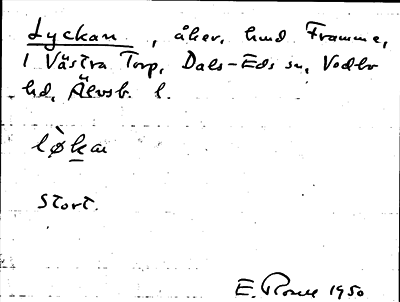 Lyckan, åker, hmd Framme,
i Västra Torp, Dals-Eds sn, Vedbo
hd, Älvsb. l.
lø̀kan
Stort.
E. 1950